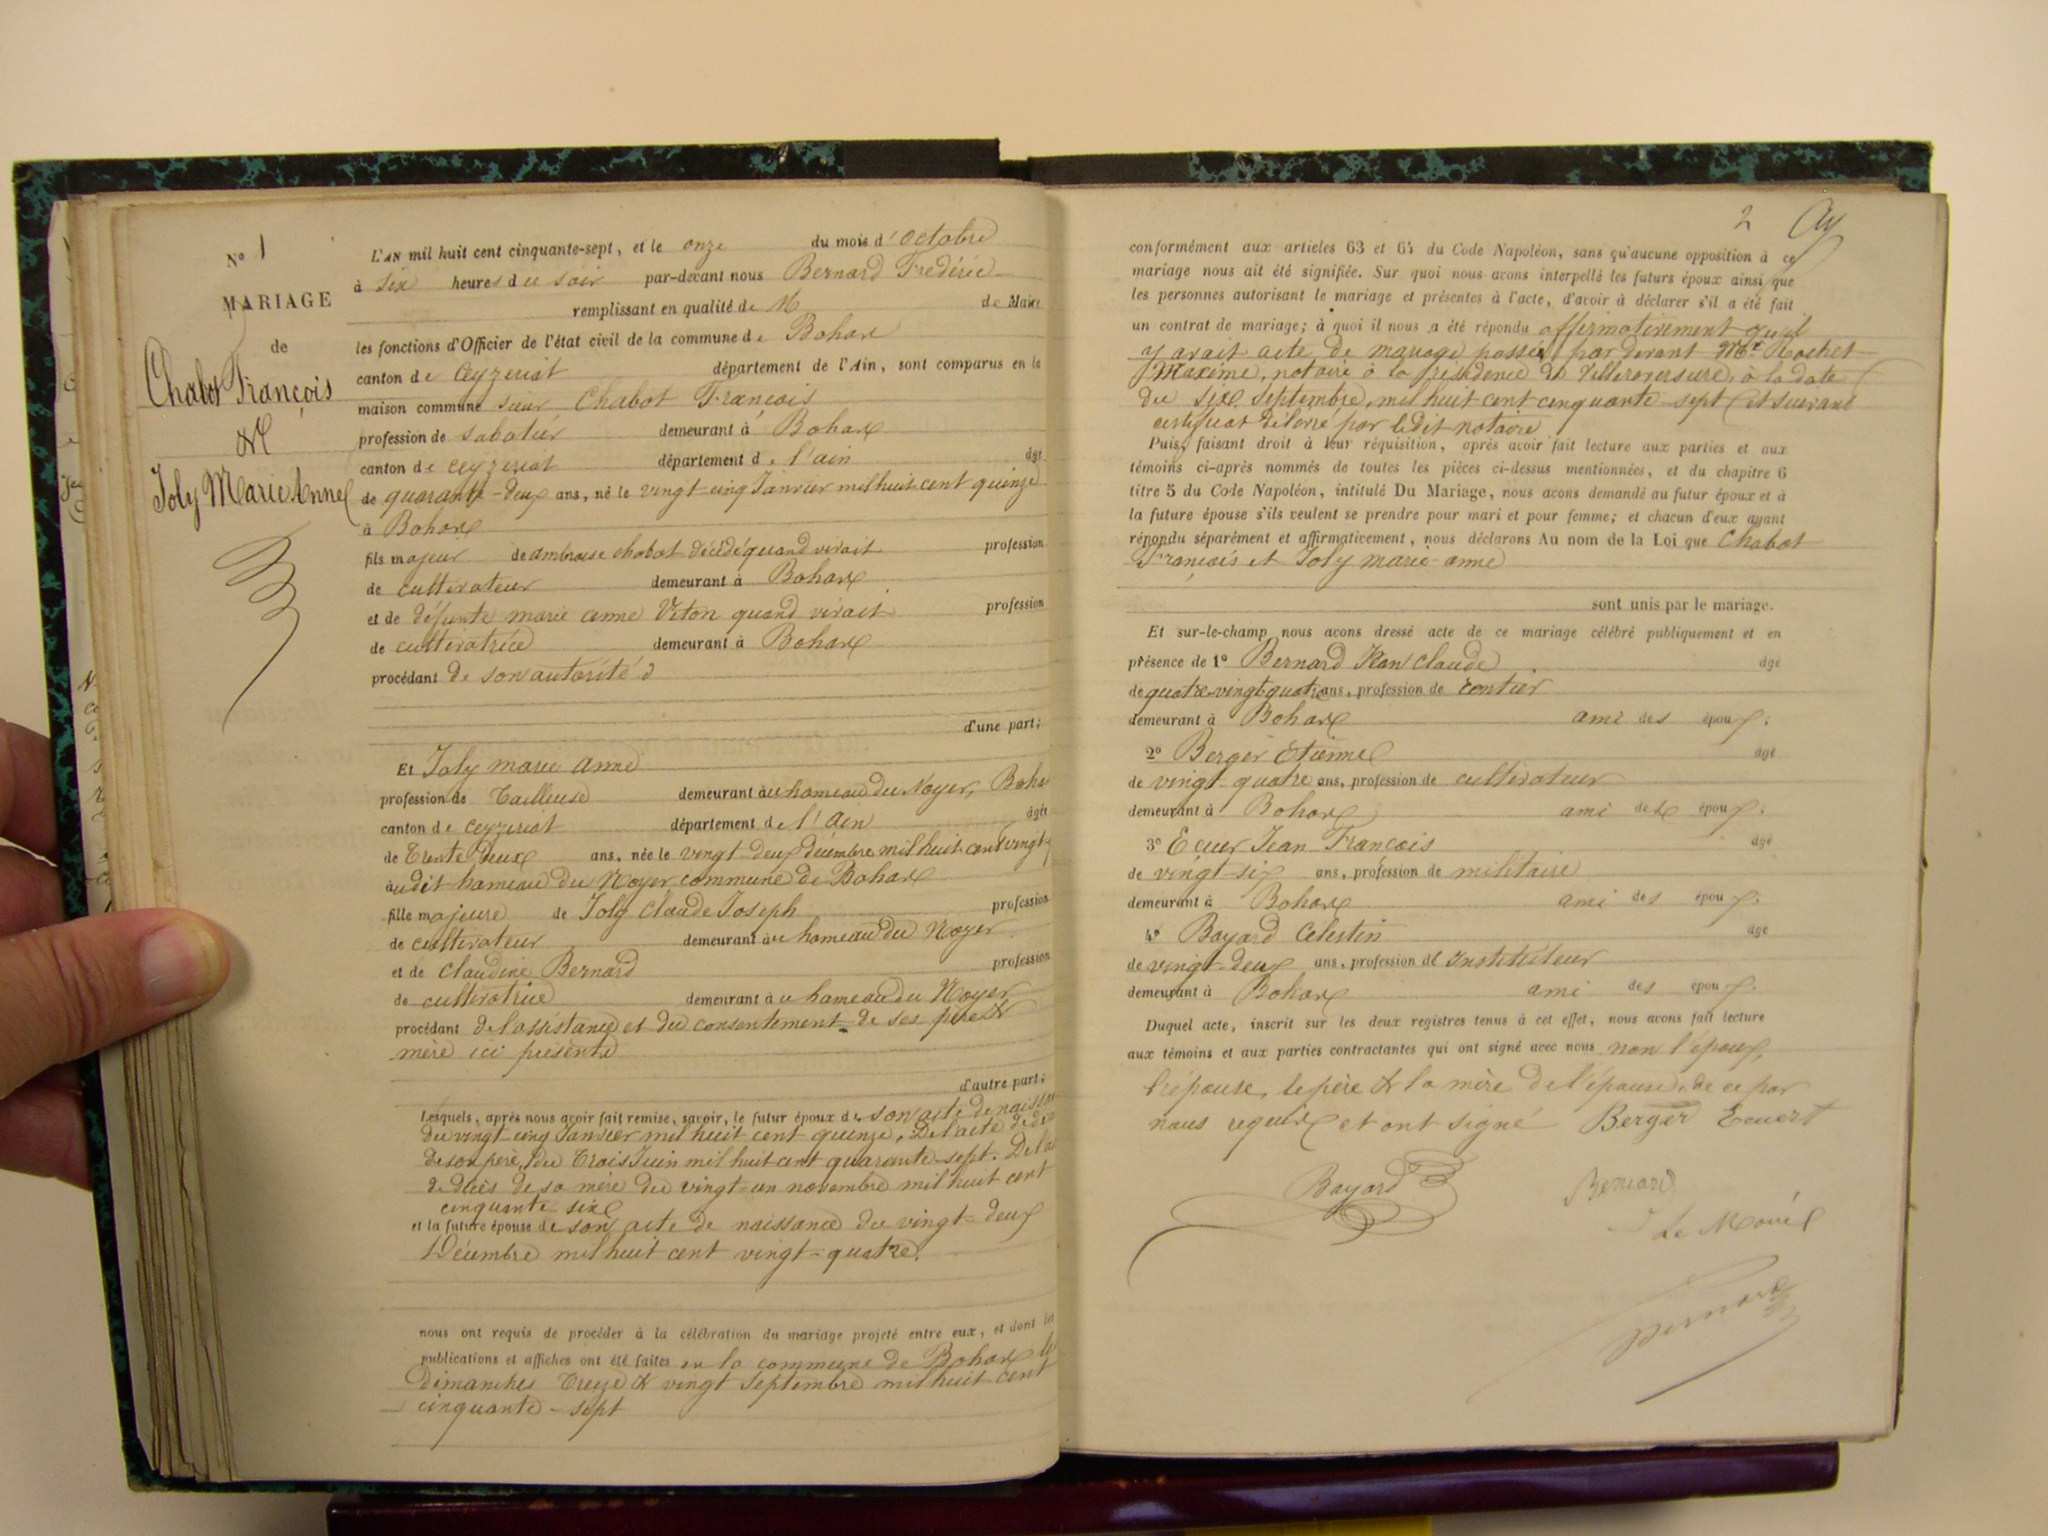 Nº 1
MARIAGE
de
Chabot François
&
Joly Marie Anne
L'AN mil huit cent cinquante-sept, et le onze du mois d'octobre
à six heures du soir par-devant nous Bernard Frédéric
remplissant en qualité de M de Maire
les fonctions d'Officier de l'état civil de la commune de Bohas
canton de Ceyzeriat département de l'Ain, sont comparus en la
maison commune sieur Chabot François
profession de sabotier demeurant à Bohas
canton de ceyzeriat département de l'ain âgé
de quarante-deux ans, né le vingt cinq Janvier mil huit cent quinze
à Bohas
fils majeur de ambroise chabot décédé quand vivait profession
de cultivateur demeurant à Bohas
et de défunte marie anne Véton quand vivait profession
de cultivatrice demeurant à Bohas
procédant de son autorité
d'une part;
Et Joly marie anne
profession de Tailleuse demeurant au hameau du Noyer, Boha
canton de ceyzeriat département de l'ain âgée
de trente deux ans, née le vingt deux décembre mil huit cent vingt
audit hameau du Noyer commune de Bohas
fille majeure de Joly Claude Joseph profession
de cultivateur demeurant au hameau du Noyer
et de Claudine Bernard profession
de cultivatrice demeurant au hameau du Noyer
procédant de l'assistance et du consentement de ses père &
mère ici présents
d'autre part;
Lesquels, après nous avoir fait remise, savoir, le futur époux de son acte de naissan
du vingt cinq Janvier mil huit cent quinze, De l'acte de dé
de son père, du trois Juin mil huit cent quarante-sept. De l'a
de décès de sa mère du vingt-un novembre mil huit cent
cinquante six
et la future épouse de son acte de naissance du vingt-deux
Décembre mil huit cent vingt-quatre.
nous ont requis de procéder à la célébration du mariage projeté entre eux, et dont les
publications et affiches ont été faites en la commune de Bohas les
dimanches treize & vingt septembre mil huit cent
cinquante-sept
2
conformément aux articles 63 et 64 du Code Napoléon, sans qu'aucune opposition à ce
mariage nous ait été signifiée. Sur quoi nous avons interpellé les futurs époux ainsi que
les personnes autorisant le mariage et présentes à l'acte, d'avoir à déclarer s'il a été fait
un contrat de mariage; à quoi il nous a été répondu affirmativement qu'il
y avait acte de mariage passé par devant Mr Rochet
Maxime, notaire à la résidence de Villereversure, à la date
du six Septembre, mil huit cent cinquante sept et suivant
certificat délivré par ledit notaire
Puis, faisant droit à leur réquisition, après avoir fait lecture aux parties et aux
témoins ci-après nommés de toutes les pièces ci-dessus mentionnées, et du chapitre 6
titre 5 du Code Napoléon, intitulé Du Mariage, nous avons demandé au futur époux et à
la future épouse s'ils veulent se prendre pour mari et pour femme; et chacun d'eux ayant
répondu séparément et affirmativement, nous déclarons Au nom de la Loi que Chabot
François et Joly marie-anne
sont unis par le mariage.
Et sur-le-champ nous avons dressé acte de ce mariage célébré publiquement et en
présence de 1º Bernard Jean claude âgé
de quatre-vingt-quatre ans, profession de rentier
demeurant à Bohas ami des époux.
2º Berger Etienne âgé
de vingt-quatre ans, profession de cultivateur
demeurant à Bohas ami des époux.
3º Ecuer Jean François âgé
de vingt-six ans, profession de militaire
demeurant à Bohas ami des époux.
4º Bayard Celestin âgé
de vingt-deux ans, profession de instituteur
demeurant à Bohas ami des époux.
Duquel acte, inscrit sur les deux registres tenus à cet effet, nous avons fait lecture
aux témoins et aux parties contractantes qui ont signé avec nous non l'époux,
l'épouse, le père & la mère de l'épouse, de ce par
nous requis et ont signé Berger Ecuert
Bayard Bernard
Le Maire
Bernard